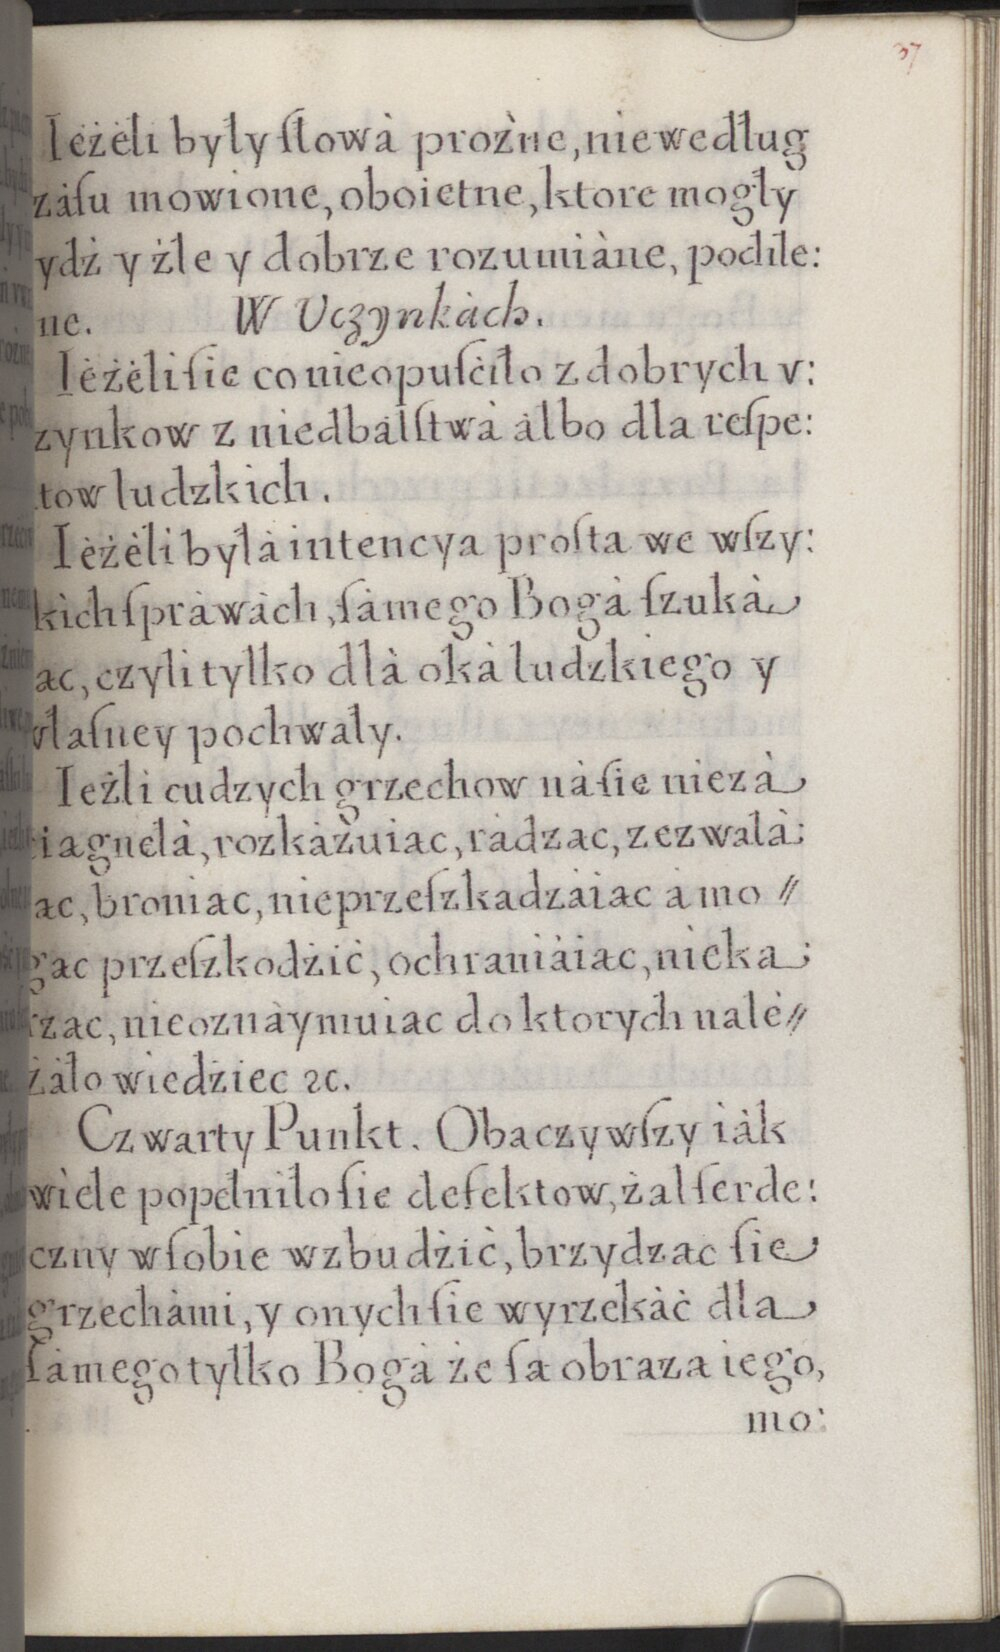 37
Ieżeli były ſłowà prożne, niewedług
zàſu mowione, oboietne, ktore mogły
ydż y żle y dobrze rozumiàne, podile:
ne. W Uczynkàch.
Ieżeli ſie co nieopuſċiło z dobrych v:
zynkow z niedbàlſtwà àlbo dla reſpe:
tow ludzkich.
Ieżeli byłà intencya proſta we wſzy:
kich ſpràwàch, ſàmego Bogà ſzukà
ac, czyli tylko dlà okà ludzkiego y
właſney pochwały.
Ieżli cudzych grzechow nà ſie niezà
iagnełà, rozkàzuiac, ràdzac, zezwalà:
ac, broniac, nieprzeſzkadzàiac à mo //
gac przeſzkodżiċ, ochraniàiac, nieka:
rzac, nieoznàymuiac do ktorych nale //
żàło wiedżiec ⁊c.
Czwarty Punkt. Obaczywſzy iàk
wiele popełniło ſie defektow, żal ſerde:
czny w ſobie wzbudżiċ, brzydzac ſie
grzechàmi, y onych ſie wyrzekàċ dla
ſàmego tylko Bogà że ſa obraza iego,
mo: